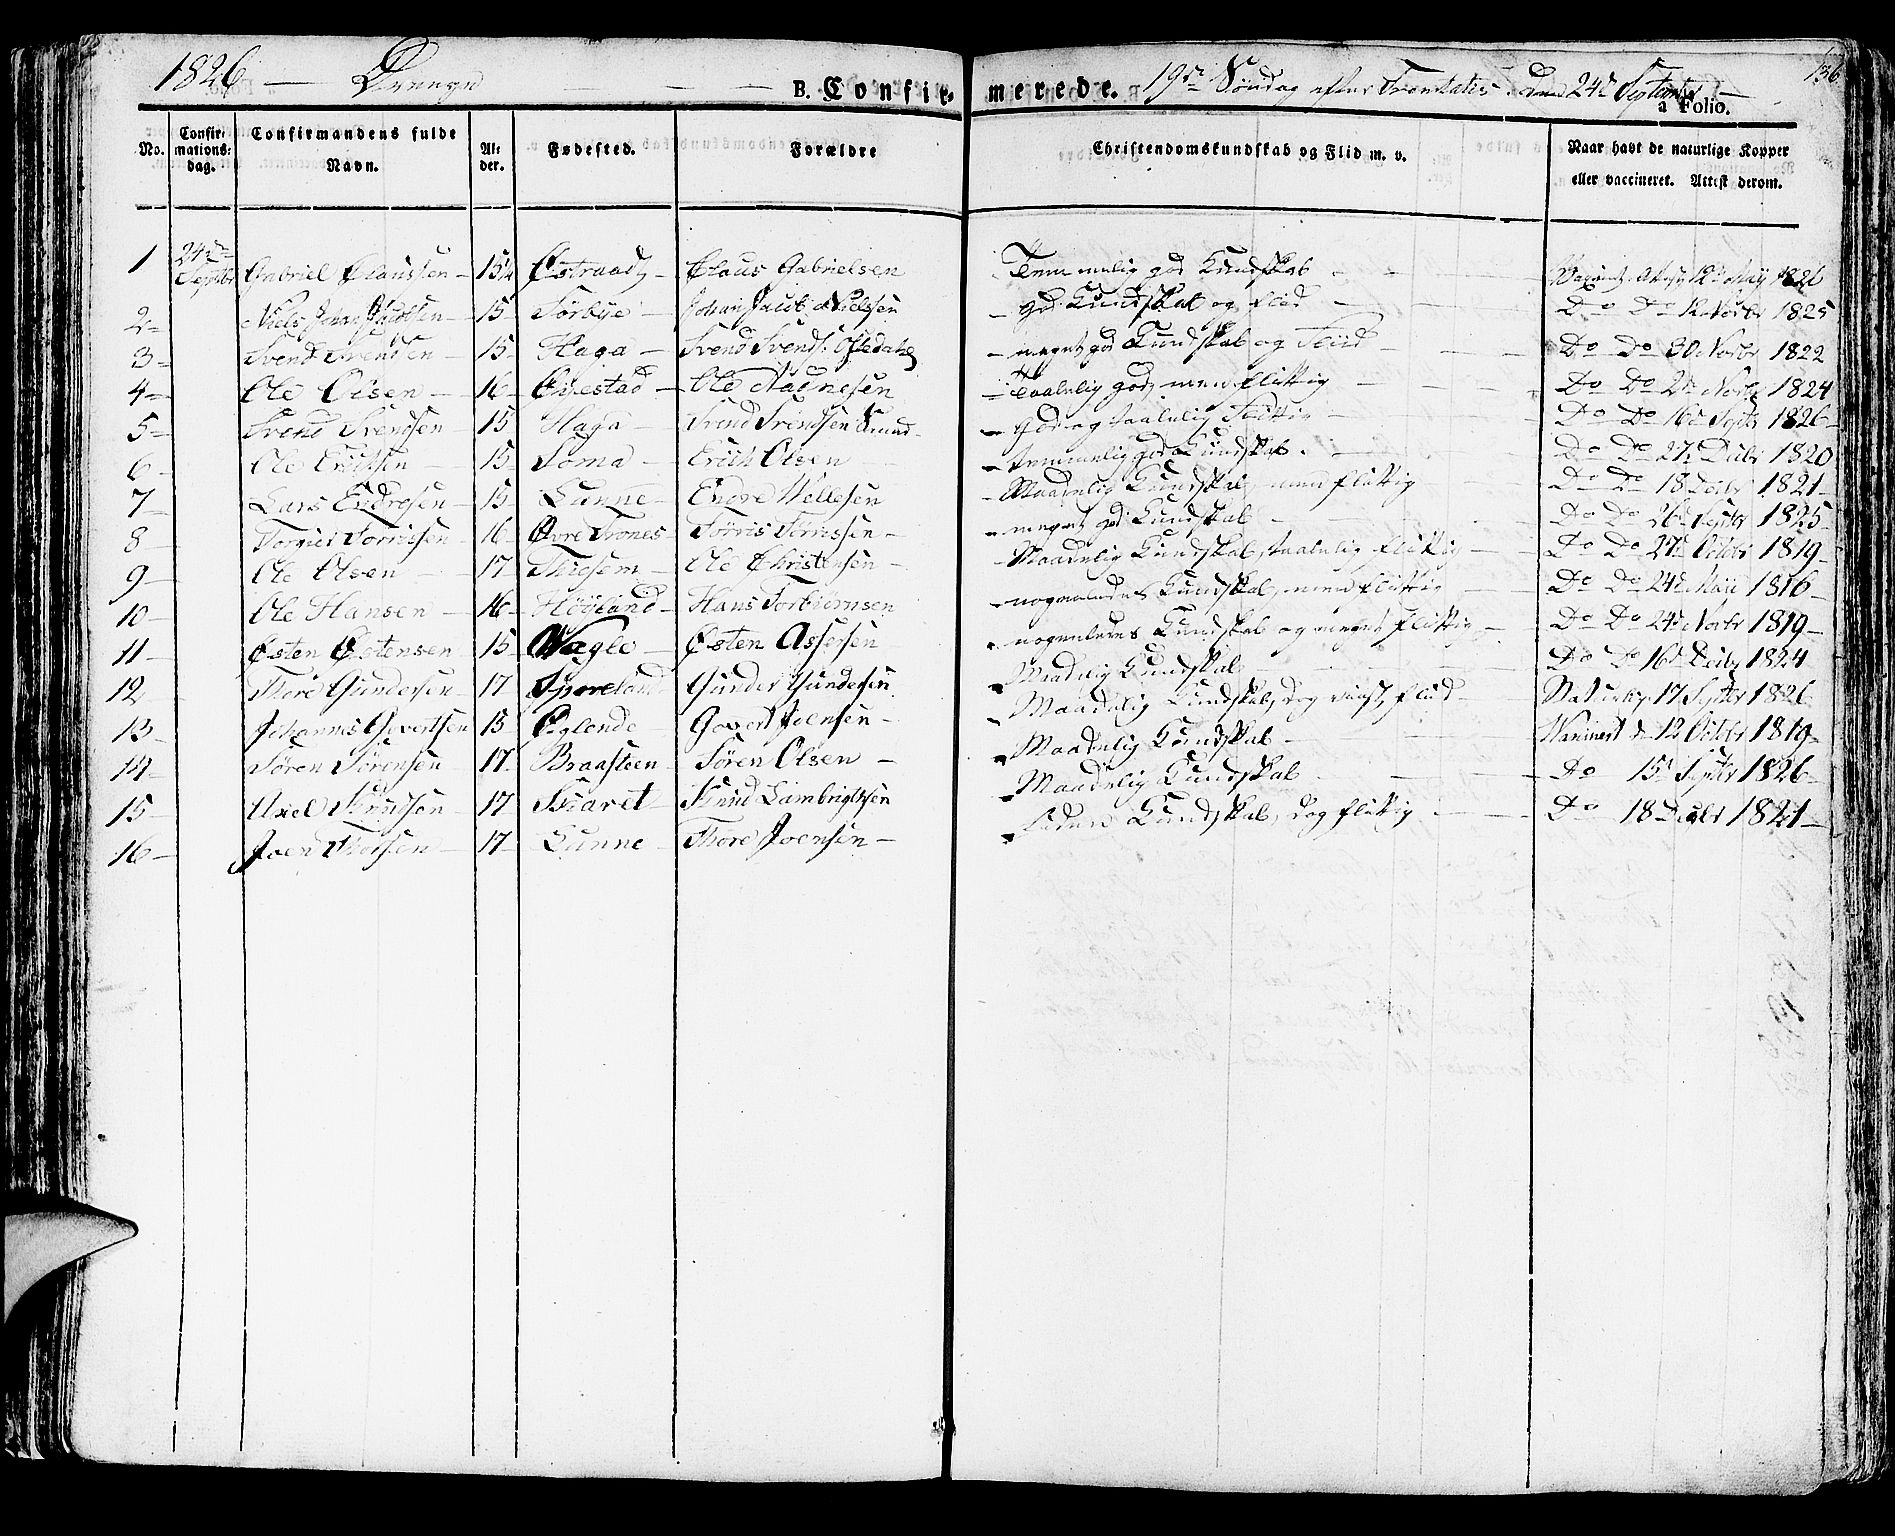 1826 — Drenge — — — B. Confir- merede. 19de Søndag efter Trinitatis den 24de Septembr 136
a Folio.
No. Confir- mations- dag. Confirmandens fulde Navn. Al- der. Fødested. Forældre Christendomskundskab og Flid m. v. Naar havt de naturlige Kopper eller vaccineret. Attest derom.
1 24de Septbr Gabriel Claussen 15 1/2 Østraadt Claus Gabrielsen Temmelig god Kundskab 12te Maÿ 1826
2 Niels Johan Jacobsen 15 Sørbÿe Johan Jacob Nielsen god Kundskab og flid Do Do 12 Novbr 1825
3 Svend Svendsen 15 Haga Svend Svends: Ofsdahl meget god Kundskab og Fliid Do Do 30 Novbr 1822
4 Ole Olsen 16 Ole taalelig god, men flittig Do Do 2de Novbr 1824
5 Svend Svendsen 15 Haga Svend Svendsen God og taalelig Flittig Do Do 16de Septr 1826
6 Ole Erichsen 15 Soma Erich Olsen temmelig god Kundskab Do Do 27de Decbr 1820
7 Lars Endresen 15 Lunne Endre Maadelig Kundskab, men flittig Do Do 18 Decbr 1821
8 Torriis Torrissen 16 Øvre Trones Tørris Tørrissen meget god Kundskab Do Do 26de Septbr 1825
9 Ole Olsen 17 Ole Christensen Maadelig Kundskab, taalelig flittig Do Do 27de Octobr 1819
10 Ole Hansen 16 Høÿland Hans Torbiørnsen nogenledes Kundskab, men flittig Do Do 24de Maÿ 1816
11 Østen Østensen 15 Wagle Østen Assersen nogenledes Kundskab og meget flittig Do Do 24de Novbr 1819
12 Thore Gundersen 17 Gunder Gundersen Maadelig Kundskab Do Do 16de Decbr 1824
13 Johannes Govertsen 15 Eglende Govert Joensen Maadelig Kundskab, dog viist Flid 17 Septbr 1826
14 Søren Sørensen 17 Braasteen Søren Olsen Maadelig Kundskab 12 Octobr 1819
15 Axel Knudsen 17 Skaret Knud Lambrigtsen Maadelig Kundskab Do 15de Septbr 1826
16 Joen Thorsen 17 Lunne Thore Joensen Liden Kundskab, dog flittig Do 18 Decbr 1821